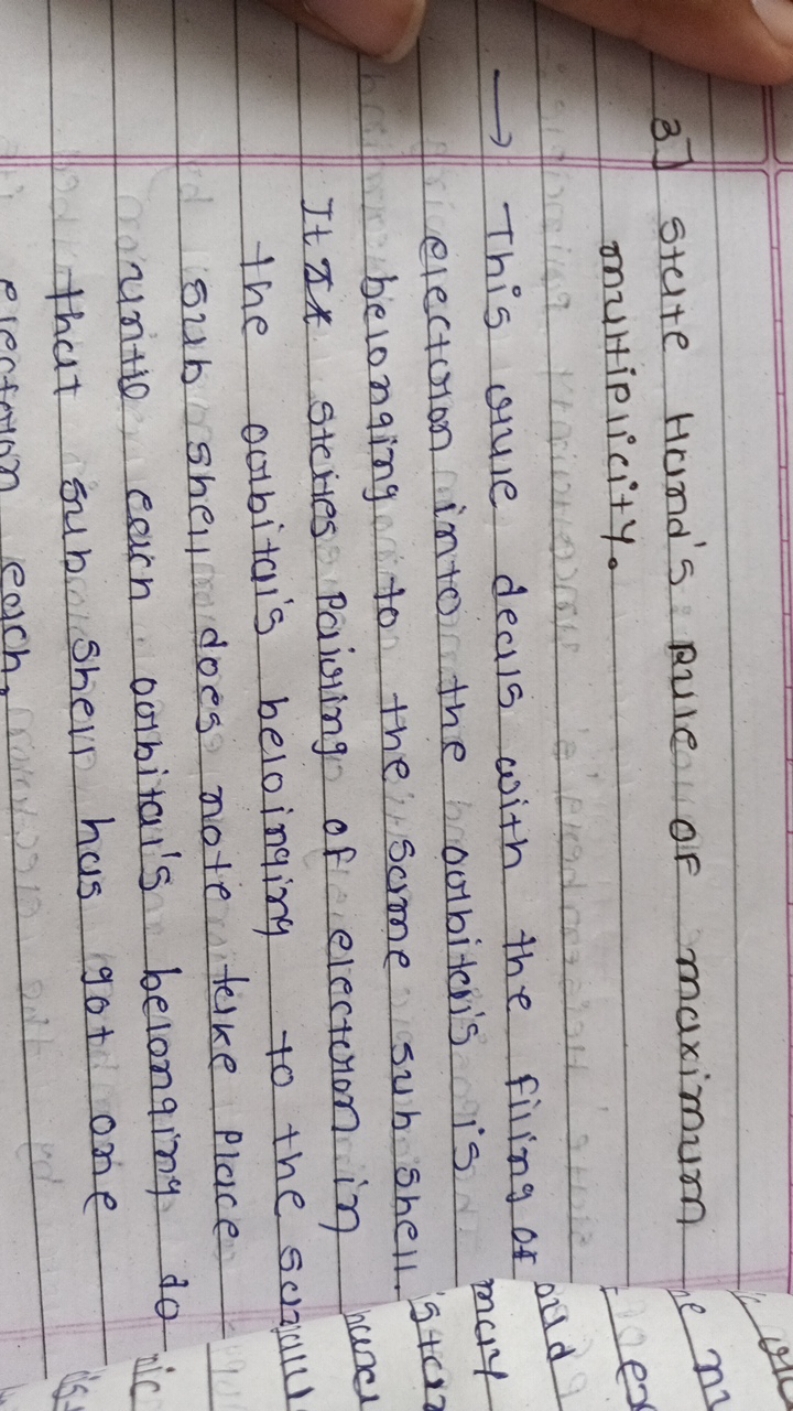 3] State Hund's Rule of maximum
multiplicity.
→ This rule deals with the filing of
electron into the orbital's is
belonging to the same sub shell.
It states Pairing of electron in
the orbital's beloinging to the same
sub shell does note take Place
untio each orbital's belonging do
that sub shell has got one
electron each.